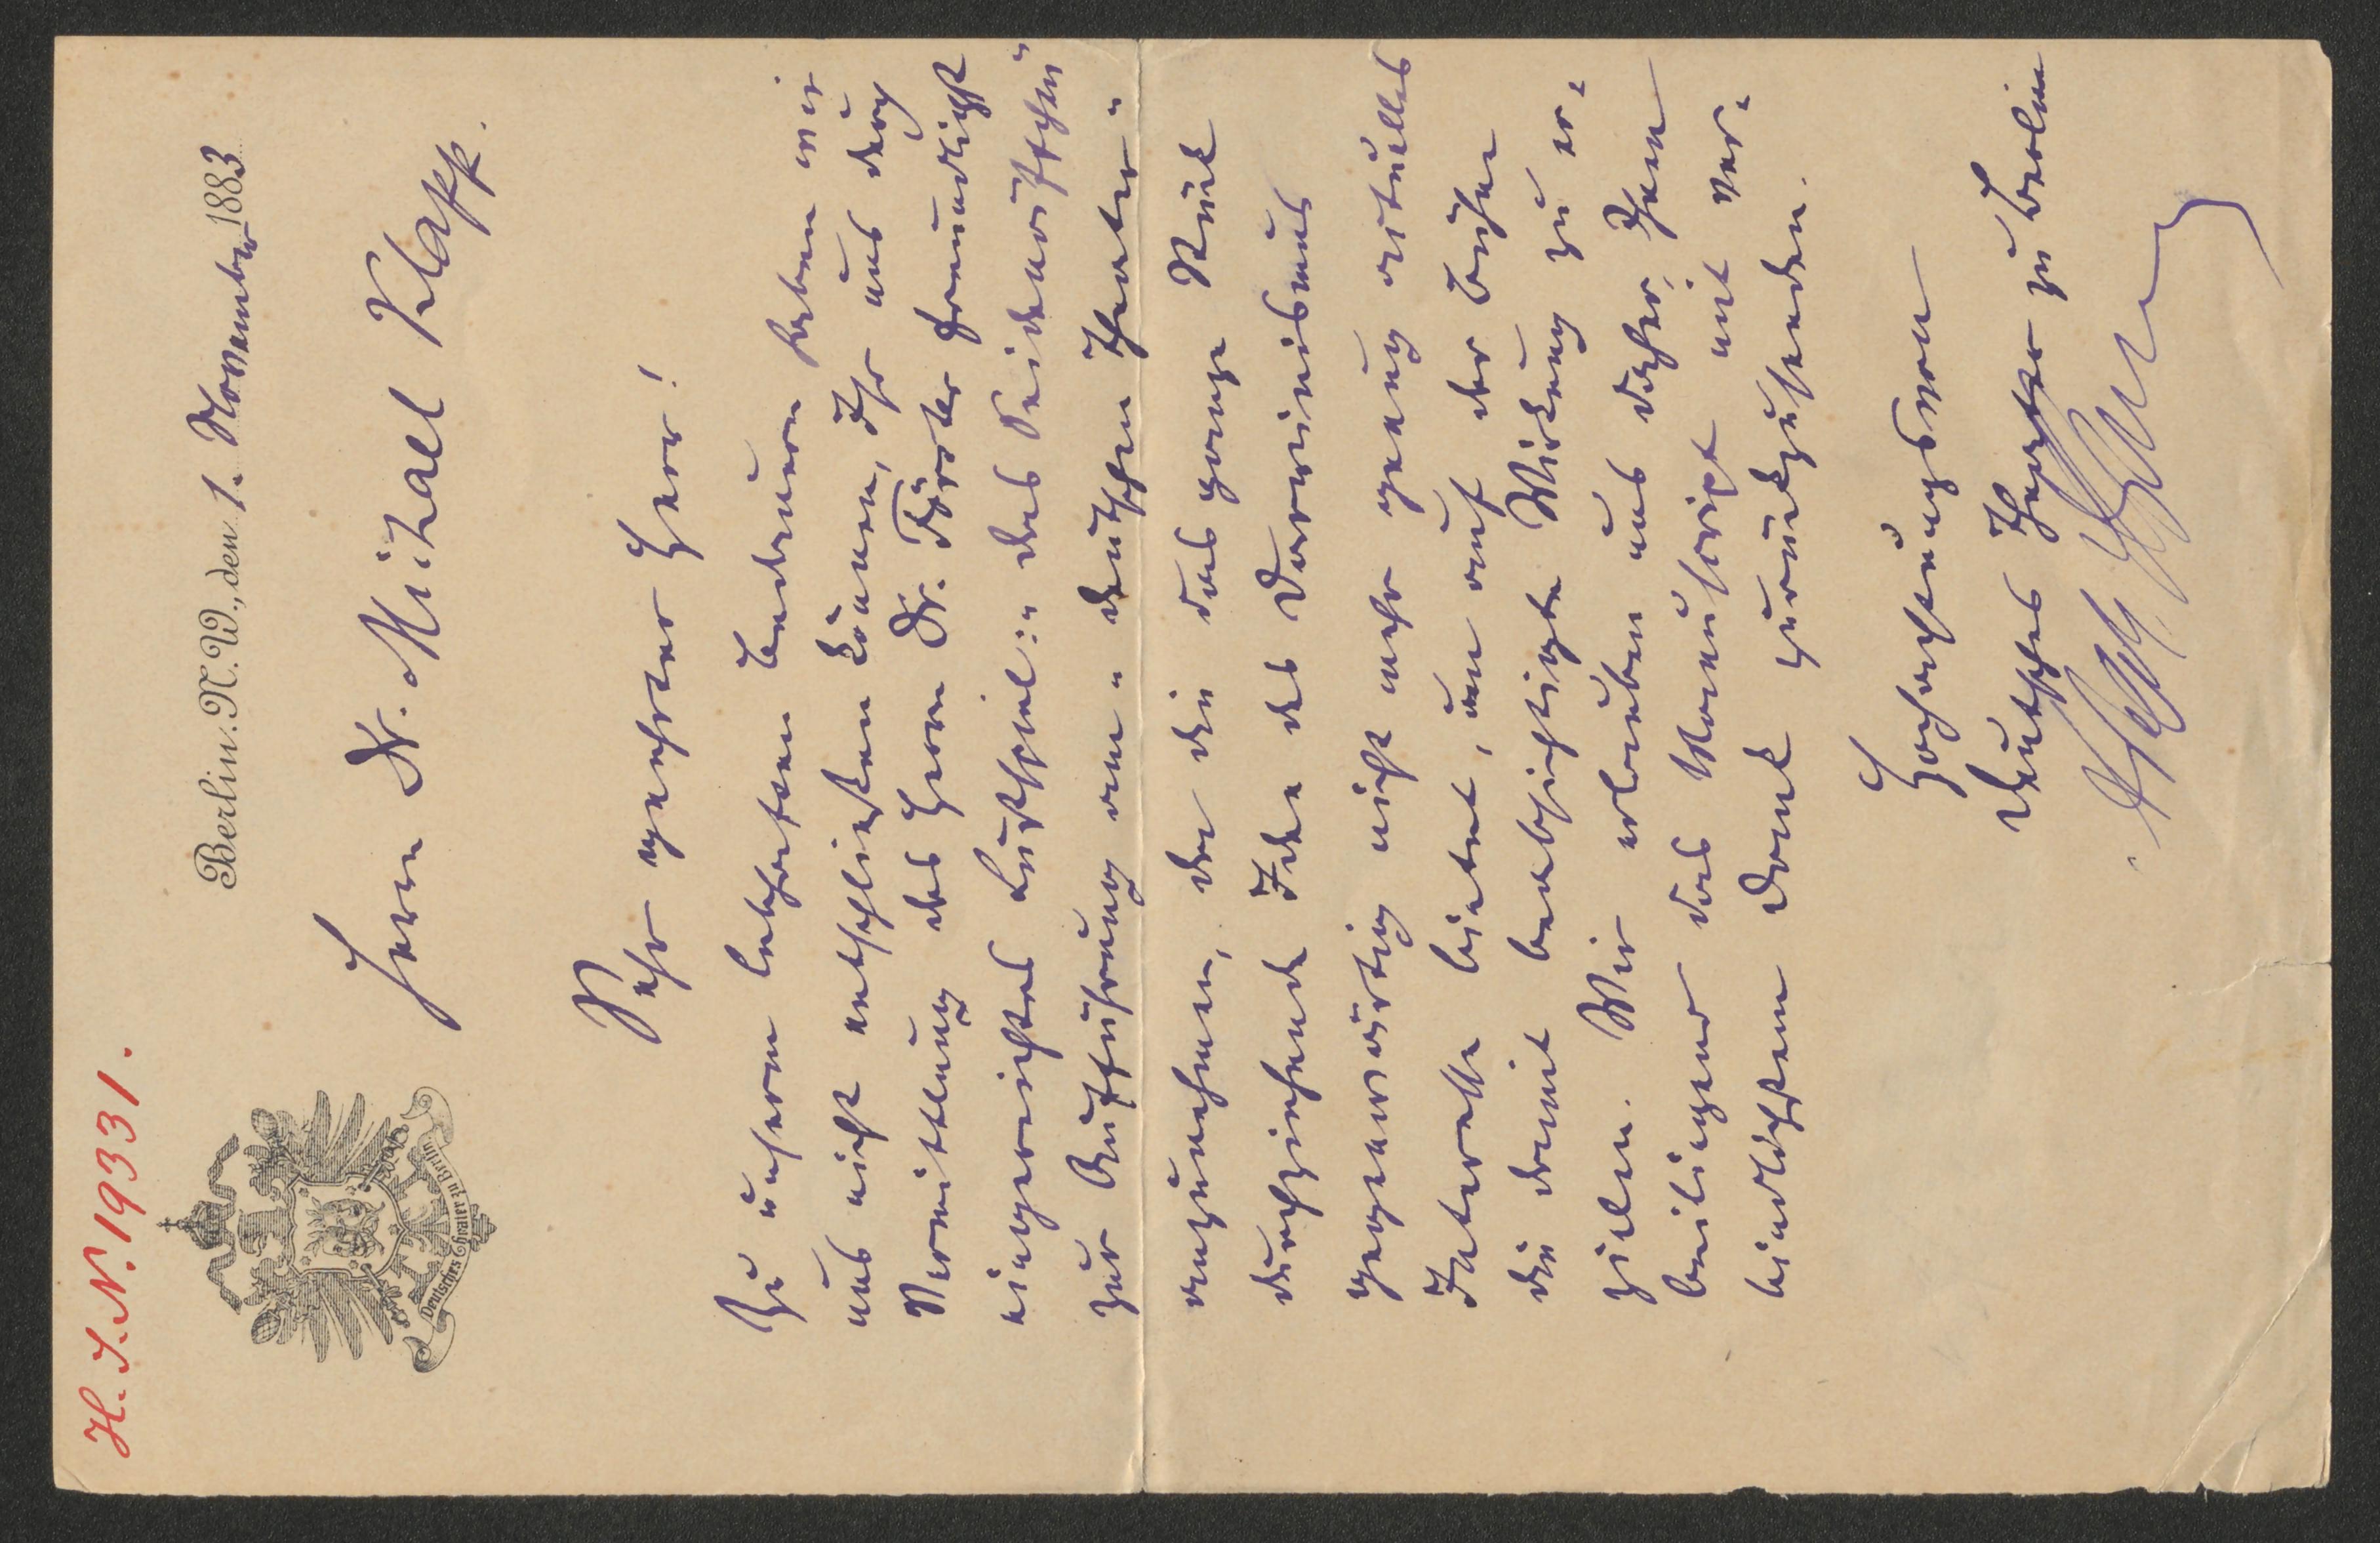 H. I. N. 19331.
Deutsches Theater zu Berlin
Berlin. N. W., den 1. November 1883
Herrn Dr. Michael Klapp.
Sehr geehrter Herr!
Zu unserm lebhaften Bedauern haben wir
uns nicht entschließen können, Ihr uns durch
Vermittlung des Herrn Dr. Förster freundlichst
eingereichtes Lustspiel: "das
zur Aufführung am "deutschen Theater"
anzunehmen, da die das ganze Stück
durchziehende Idee des Darwinismus
gegenwärtig nicht mehr genug aktuelles
Interesse bietet, um auf der Bühne
die damit beabsichtigte Wirkung zu er-
zielen. Wir erlauben uns daher, Ihnen
beiliegend das Manuscript mit ver-
bindlichstem Dank zurückzusenden.
Hochachtungsvoll
Deutsches Theater zu Berlin